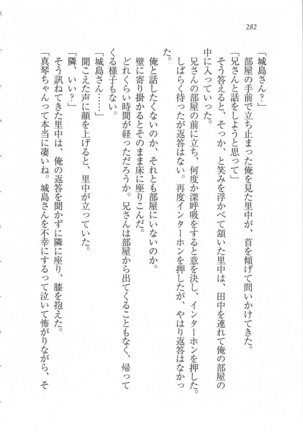 282
「城島さん？」
部屋の手前で立ち止まった俺を見た里中が、首を傾げて問いかけてきた。
「兄さんと話をしようと思って」
そう答えると、そっか、と笑みを浮かべて頷いた里中は、田中を連れて俺の部屋の
中に入っていった。
兄さんの部屋の前に立ち、何度か深呼吸をすると意を決し、インターホンを押した。
しばらく待ったが返答はない。再度インターホンを押したが、やはり返答はなかっ
た。
俺と話したくないのか、それとも部屋にいないのか。
壁に寄り掛かるとそのまま床に座りこんだ。
どれくらい時間が経っただろうか。兄さんは部屋から出てくることもなく、帰って
くる様子もない。
「城島さん」
聞こえた声に顔を上げると、里中が立っていた。
「隣、いい？」
そう訊ねてきた里中は、俺の返答を聞かずに隣に座り、膝を抱えた。
「真琴ちゃんって本当に凄いね。城島さんを不幸にするって泣いて怖がりながら、そ